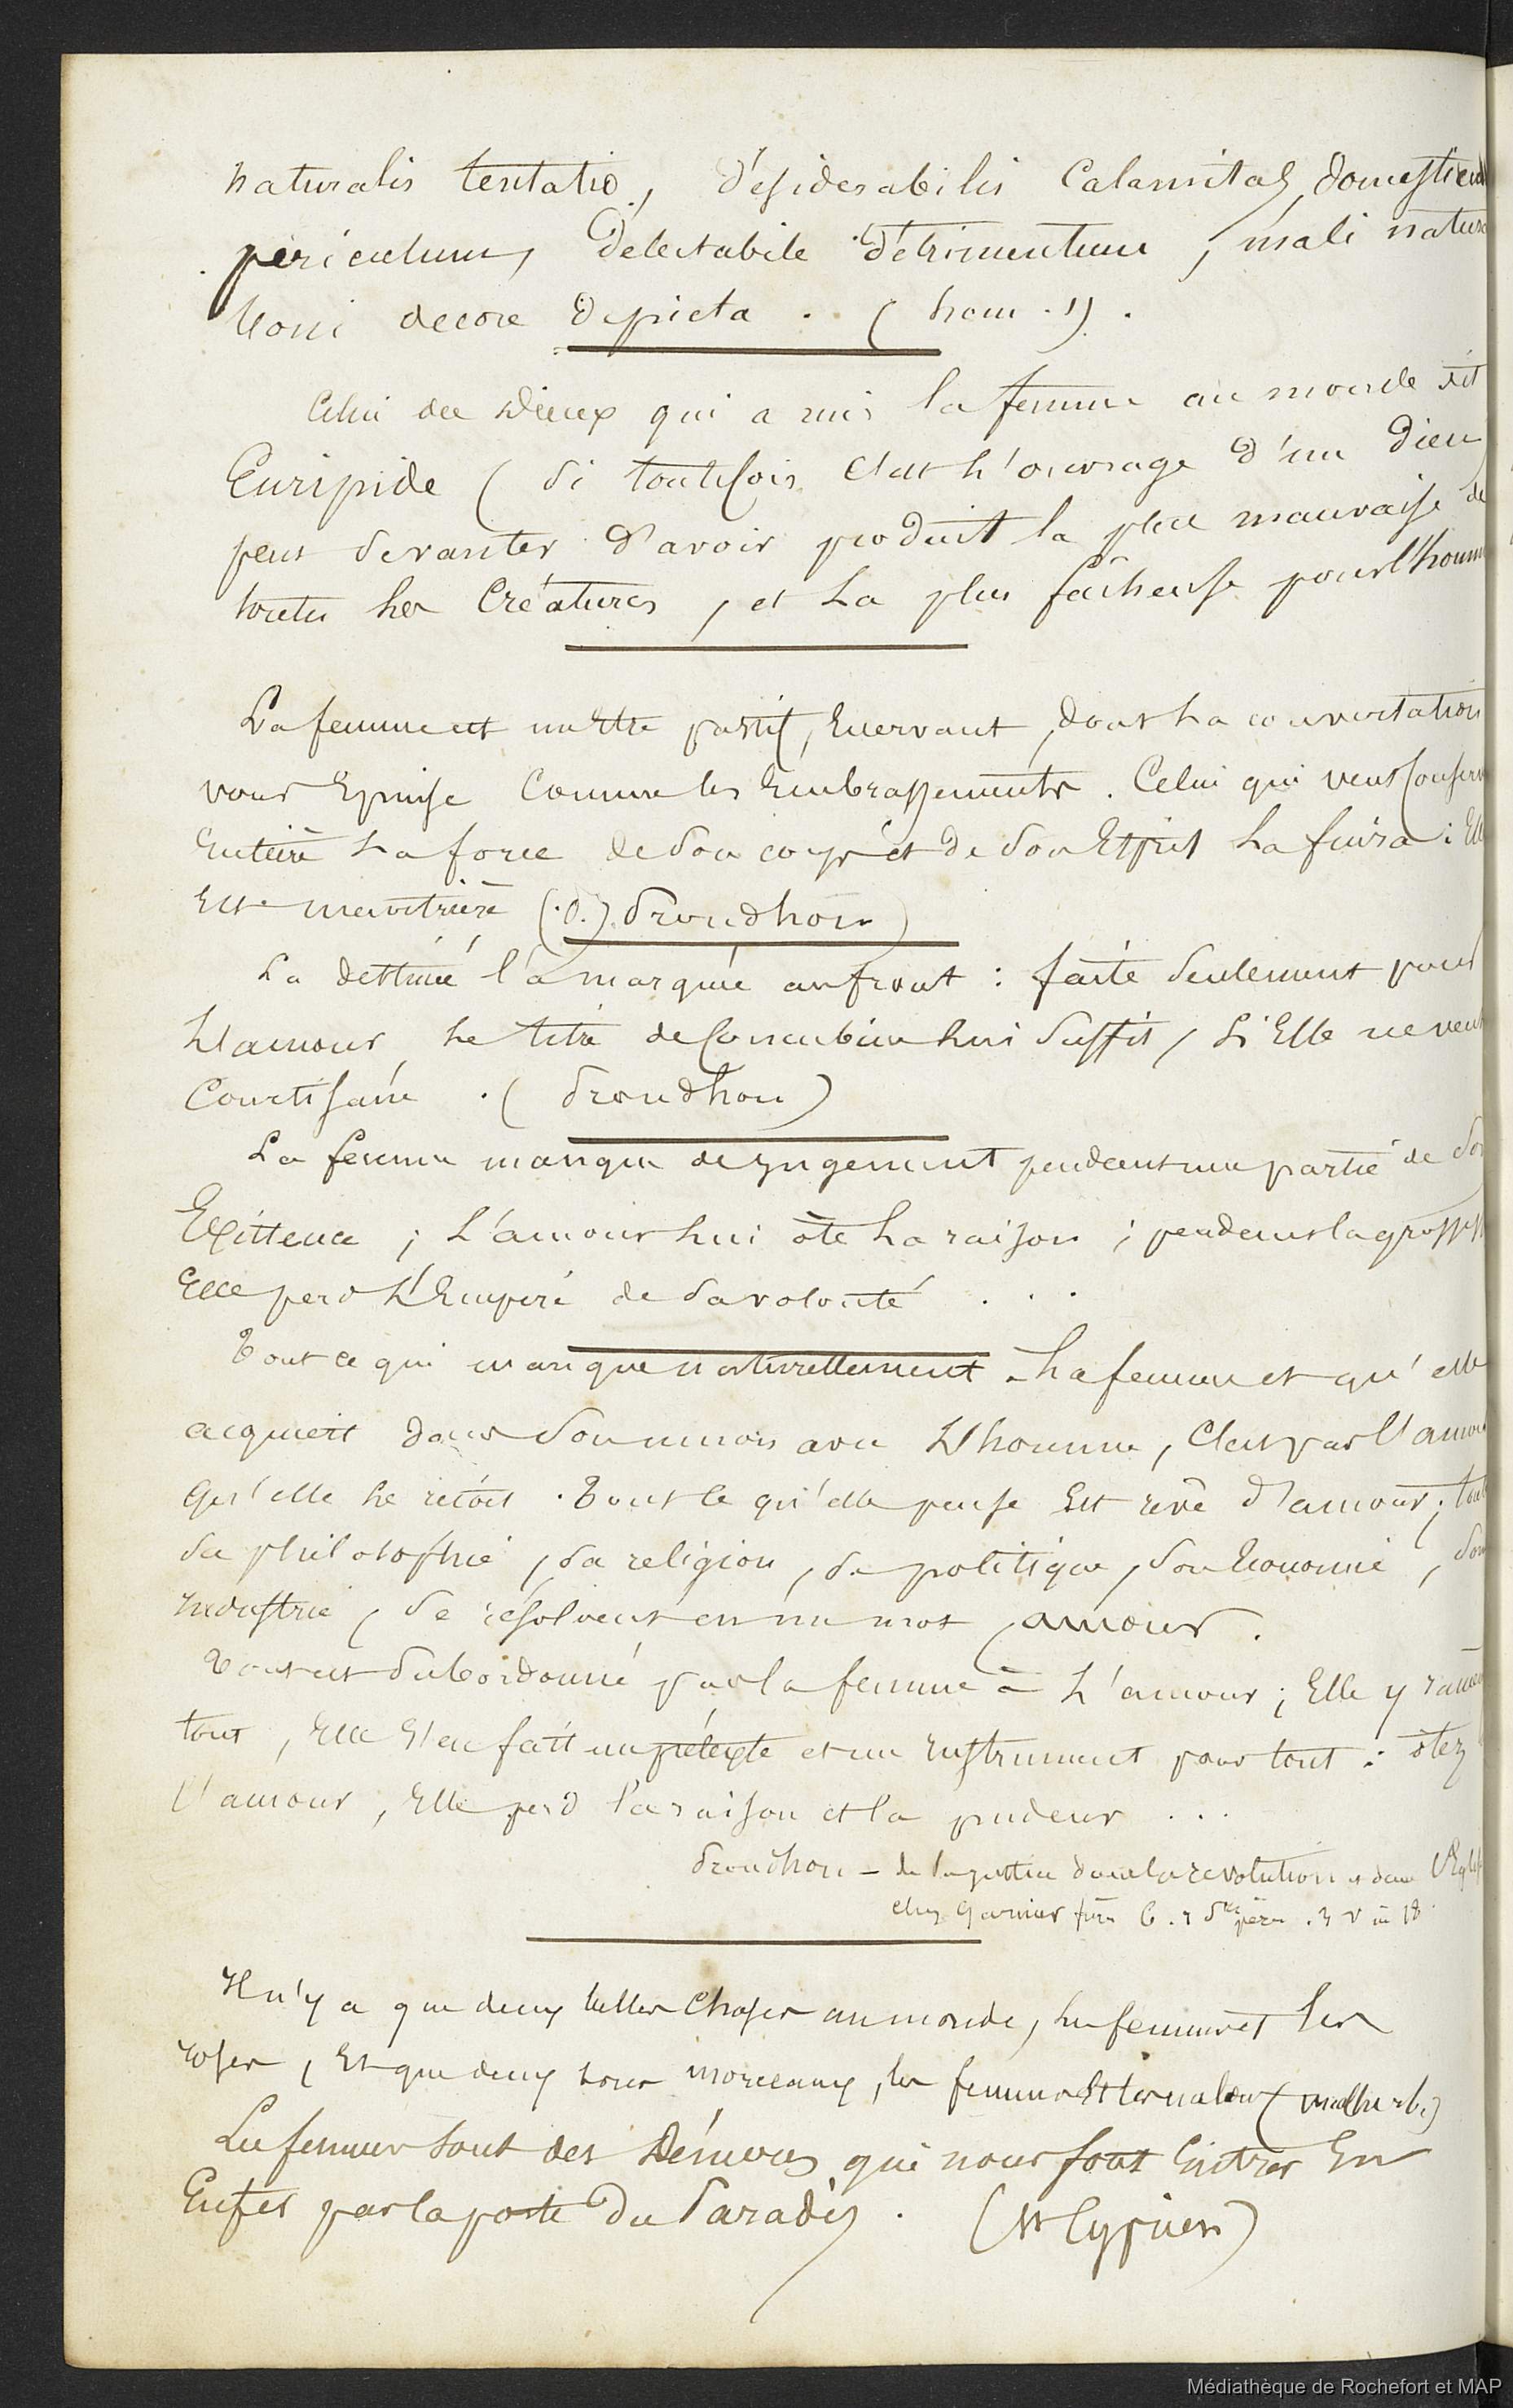 naturalis tentatio, désiderabilis Calamitas, domesticum
periculum, delectabile détrimentum, mali natura
boni decore depicta. (hom. 1).
Celui des Dieux qui a mis la femme au monde dit
Euripide (si toutefois c'est l'ouvrage d'un Dieu)
peut se vanter d'avoir produit la plus mauvaise de
toutes les Créatures, et la plus fâcheuse pour l'homme
La femme est un être passif, Enervant, dont la conversation
vous Epuise Comme les Embrassements. Celui qui veut Conserver
Entière la force de son corps et de son Esprit la fuira: Elle
Est meurtrière Proudhon)
La destinée l'a marquée au front: faite seulement pour
L'amour, le titre de Concubine lui suffit, si Elle ne veut
Courtisane. (Proudhon)
La femme manque de jugement pendant une partie de son
Existence; L'amour lui ôte la raison; pendant la grossesse
Elle perd L'Empire de sa volonté ...
Tout ce qui manque naturellement à la femme et qu'elle
acquiert dans son union avec L'homme, C'est par l'amour
qu'elle le reçoit. Tout ce qu'elle pense Est rêve d'amour; toute
sa philosophie, sa religion, sa politique, son Economie, son
Industrie, se résolvent en un mot, amour.
Tout est subordonné par la femme à L'amour; Elle y ramène
tout, Elle s'en fait un prétexte et un Instrument pour tout: ôtez
l'amour, Elle perd la raison et la pudeur ...
Proudhon – de la justice dans la revolution et dans l'Eglise
chez Garnier frères 6. r Sts pères. 3 v in 18
Il n'y a que deux belles Choses au monde, les femmes et les
roses, Et que deux bons morceaux, les femmes Et les melons (malherbe)
Les femmes sont des Démons qui nous font Entrer En
Enfer par la porte du Paradis. (St Cyprien)
Médiathèque de Rochefort et MAP